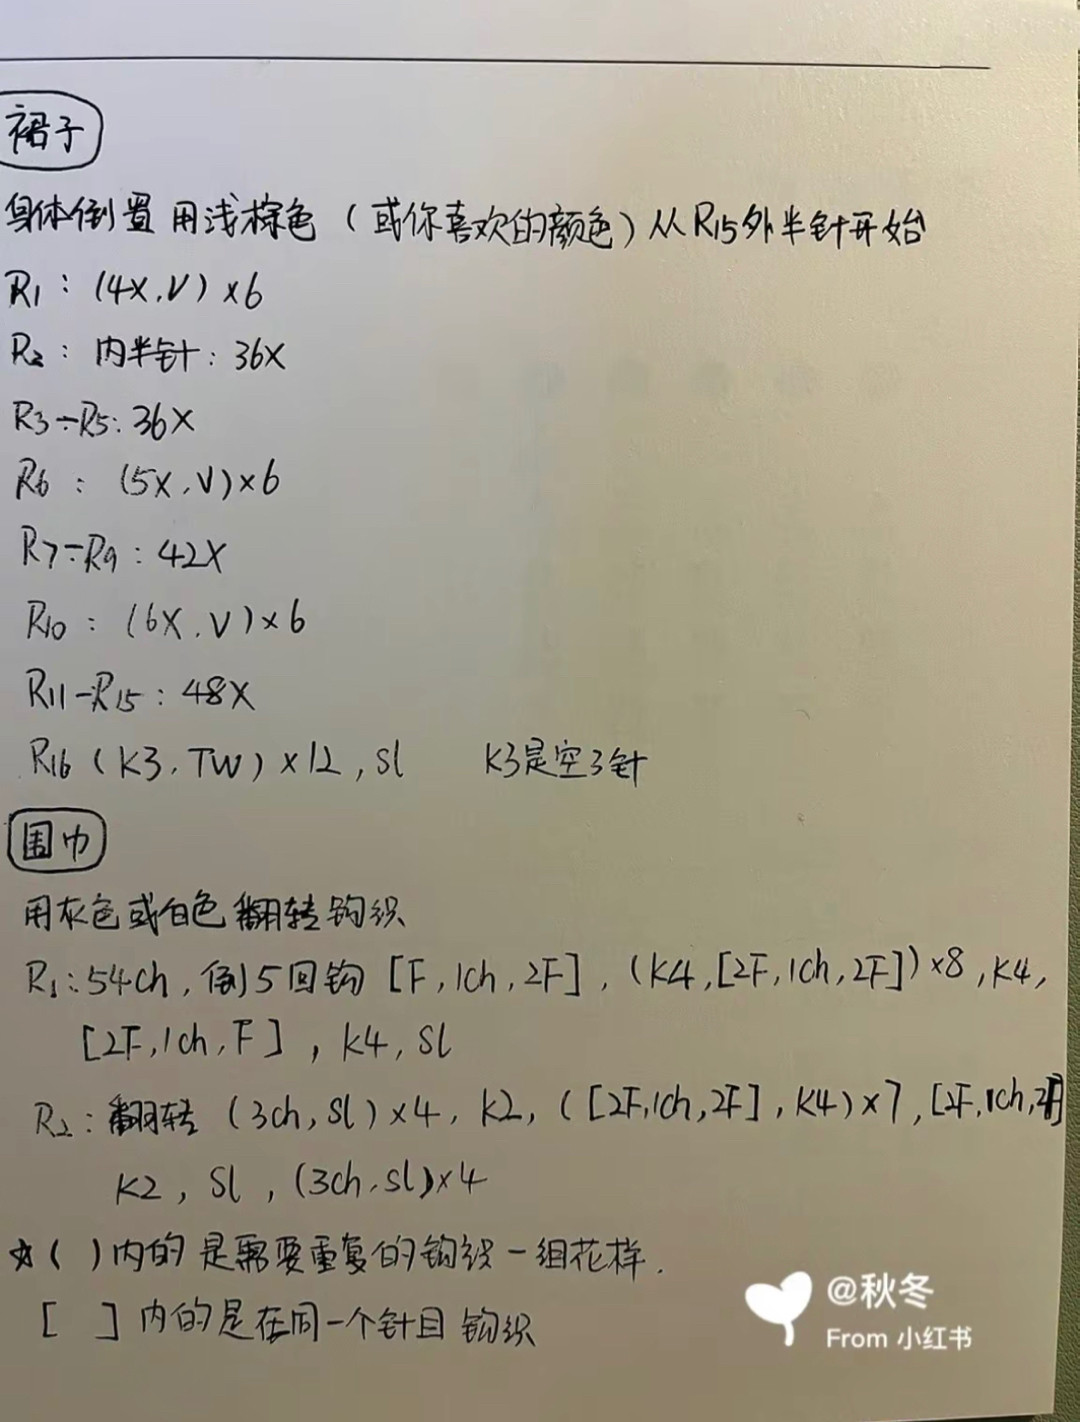 裙子
身体倒置 用浅棕色（或你喜欢的颜色）从R15外半针开始
R1：(4X,V)×6
R2：内半针：36X
R3-R5：36X
R6：(5X,V)×6
R7-R9：42X
R10：(6X,V)×6
R11-R15：48X
R16 (K3,TW)×12,sl K3是空3针
围巾
用灰色或白色翻转钩织
R1：54ch,倒5回钩 [F,1ch,2F],(K4,[2F,1ch,2F])×8,K4,
[2F,1ch,F],K4,Sl
R2：翻转 (3ch,Sl)×4,K2,([2F,1ch,2F],K4)×7,[2F,1ch,2F]
K2,Sl,(3ch,sl)×4
☆( )内的是需要重复的钩织一组花样.
[ ]内的是在同一个针目钩织
@秋冬
From 小红书